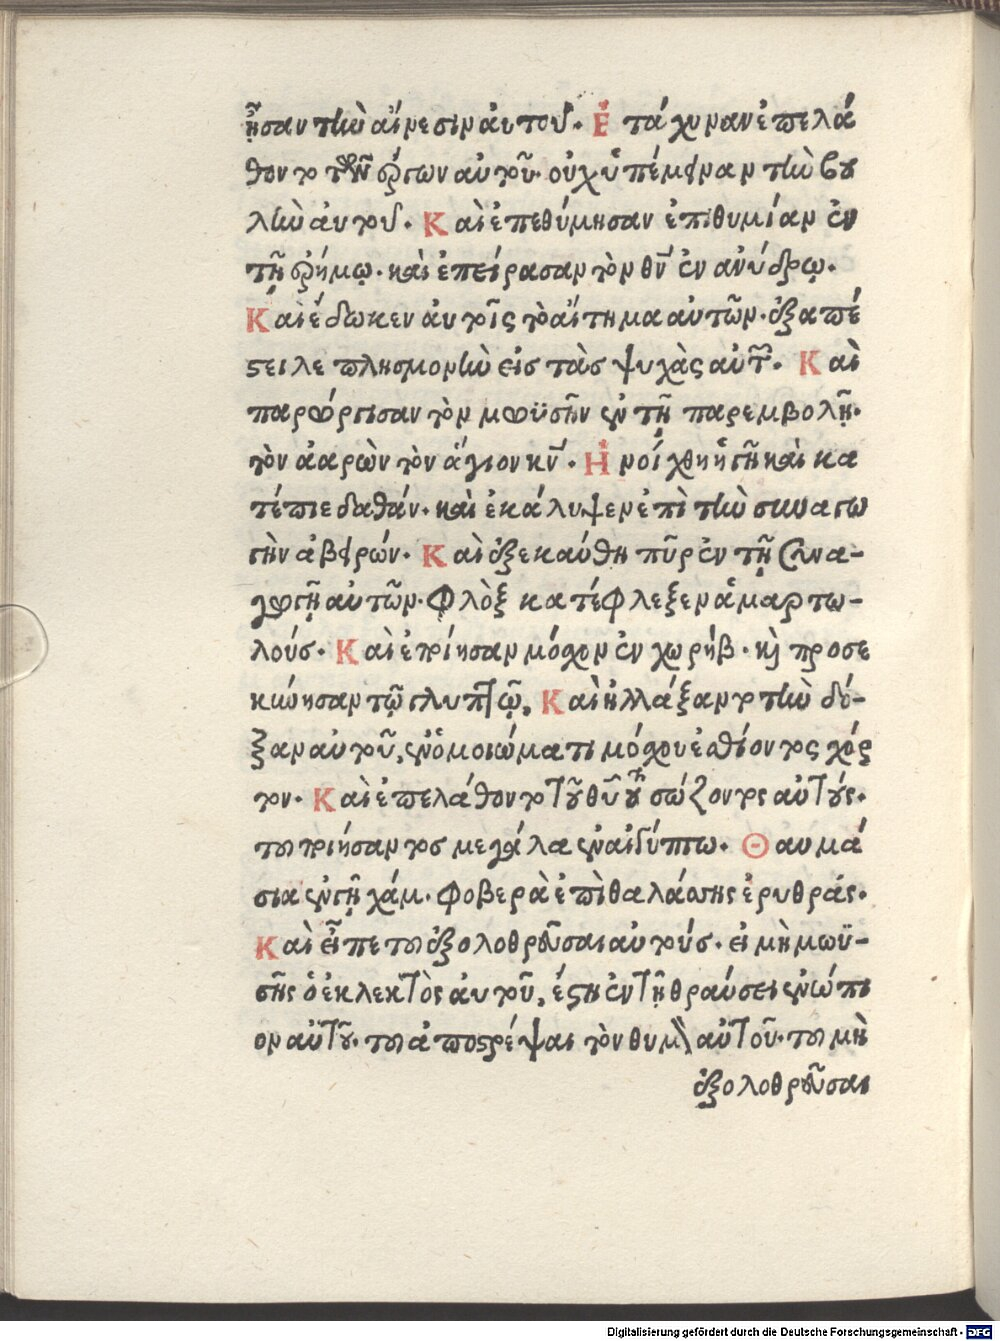 ῄσαν τὴν αἴνεσιν αὐτοῦ. Ἐτάχυναν ἐπελά
θοντο τῶν ἔργων αὐτοῦ. οὐχ ὑπέμειναν τὴν βου
λὴν αὐτοῦ. Καὶ ἐπεθύμησαν ἐπιθυμίαν ἐν
τῇ ἐρήμῳ. καὶ ἐπείρασαν τὸν θν̄ ἐν ἀνύδρῳ.
Καὶ ἔδωκεν αὐτοῖς τὸ αἴτημα αὐτῶν. ἐξαπέ
στειλε πλησμονὴν εἰς τὰς ψυχὰς αὐτῶν. Καὶ
παρώργισαν τὸν μωϋσῆν ἐν τῇ παρεμβολῇ.
τὸν ἀαρὼν τὸν ἅγιον κῡ. Ἠνοίχθη ἡ γῆ καὶ κα
τέπιε δαθάν. καὶ ἐκάλυψεν ἐπὶ τὴν συναγω
γὴν ἀβειρών. Καὶ ἐξεκαύθη πῦρ ἐν τῇ συνα-
γωγῇ αὐτῶν. φλὸξ κατέφλεξεν ἁμαρτω-
λούς. Καὶ ἐποίησαν μόσχον ἐν χωρήβ. καὶ προσε
κύνησαν τῷ γλυπτῷ, Καὶ ἠλλάξαντο τὴν δό-
ξαν αὐτοῦ, ἐν ὁμοιώματι μόσχου ἐσθίοντος χόρ
τον. Καὶ ἐπελάθοντο τοῦ θῡ τοῦ σώζοντος αὐτούς.
τοῦ ποιήσαντος μεγάλα ἐν αἰγύπτω. Θαυμά
σια ἐν γῇ χάμ. φοβερὰ ἐπὶ θαλάσσης ἐρυθράς.
Καὶ εἶπε τοῦ ἐξολοθρεῦσαι αὐτούς. εἰ μὴ μωϋ-
σῆς ὁ ἐκλεκτὸς αὐτοῦ, ἔστη ἐν τῇ θραύσει ἐνώπι
ον αὐτοῦ. τοῦ ἀποστρέψαι τὸν θυμὸν αὐτοῦ. τοῦ μὴ
ἐξολοθρεῦσαι
Digitalisierung gefördert durch die Deutsche Forschungsgemeinschaft - DFG